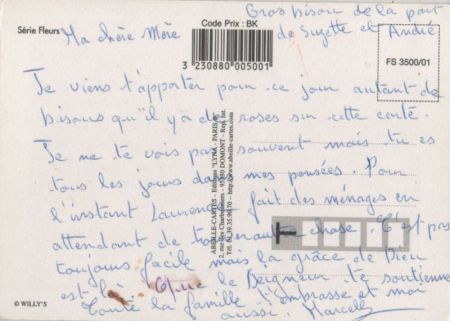 Gros bison de la part
Série Fleurs
Code Prix : BK
Ma chère Mère
de Suzette et André
3 230880 005001
FS 3500/01
Je viens t'apporter pour ce jour autant de
bisous qu'il y a de roses sur cette carte.
Je ne te vois pas souvent mais tu es
tous les jours dans mes pensées. Pour
l'instant Laurence fait des ménages en
attendant de trouver autre chose. C'est pas
toujours facile mais la grâce de Dieu
est là. Que le Seigneur te soutienne
Toute la famille t'embrasse et moi
aussi. Marcelle
ABEILLE-CARTES - Editions "LYNA - PARIS"
2, rue des Charbonniers - 95330 DOMONT - Rep. Int.
Tél. 01.39.35.90.70 - http://www.abeille-cartes.com
© WILLY'S